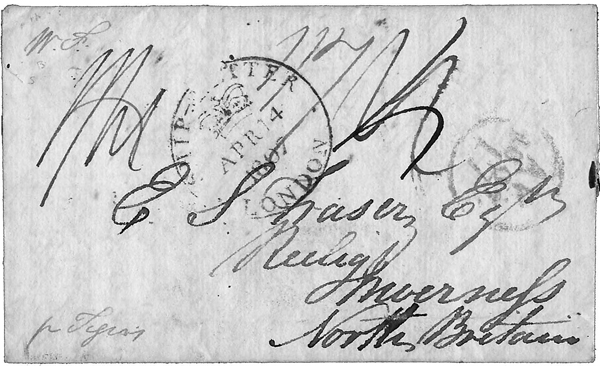 W. F.
SHIP LETTER
APR 14
LONDON
E S Fraser Esqr
Reelig
Inverness
North Britain
pr Tigris